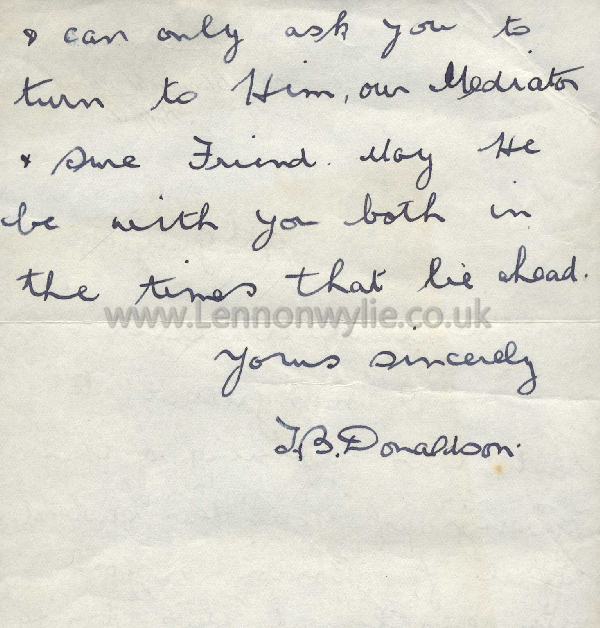 & can only ask you to
turn to Him, our Mediator
& sure Friend. May He
be with you both in
the times that lie ahead.
www.Lennonwylie.co.uk
Yours sincerely
T.B. Donaldson.